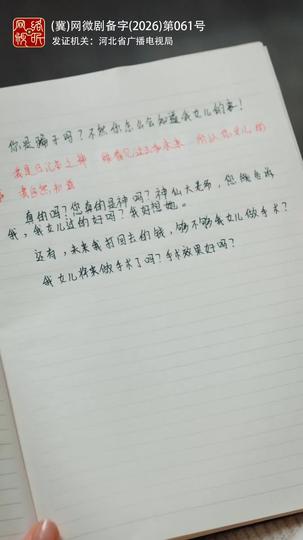 网络视听
(冀)网微剧备字(2026)第061号
发证机关：河北省广播电视局
你是骗子吗？不然你怎么会知道我女儿的事！
我是日记本之神 能看见过去和未来 所以你女儿的
事 我自然知道
真的吗？您真的是神吗？神仙大老师，您能告诉
我，我女儿过的好吗？我好想她。
还有，未来我打回去的钱，够不够我女儿做手术？
我女儿将来做手术了吗？手术效果好吗？